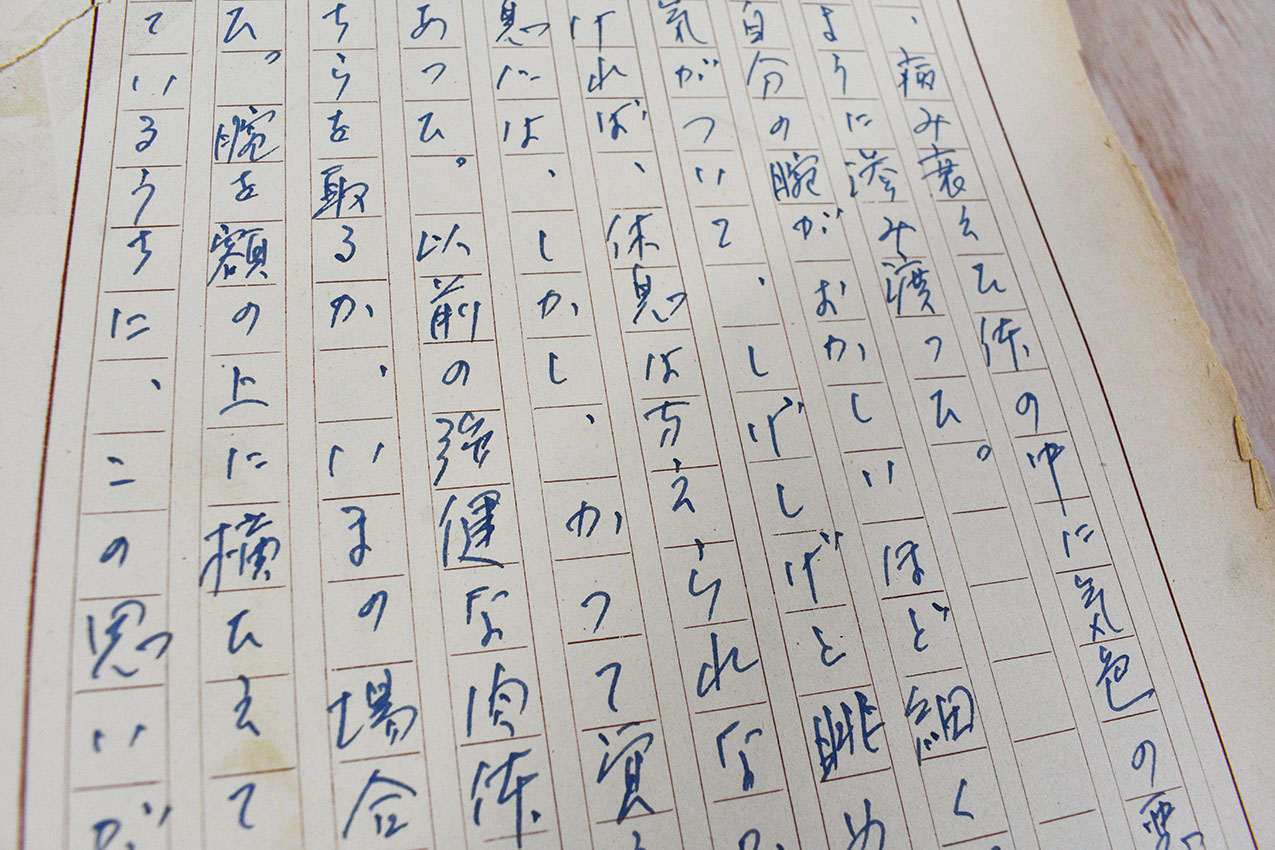 、病み衰えた体の中に気色の悪
ように滲み渡った。
自分の腕がおかしいほど細く
気がついて、しげしげと眺め
ければ、休息は考えられな
息には、しかし、かつて
あった。以前の強健な肉体
ちらを取るか、いまの場合
た。腕を額の上に横たえて
ているうちに、この思いが